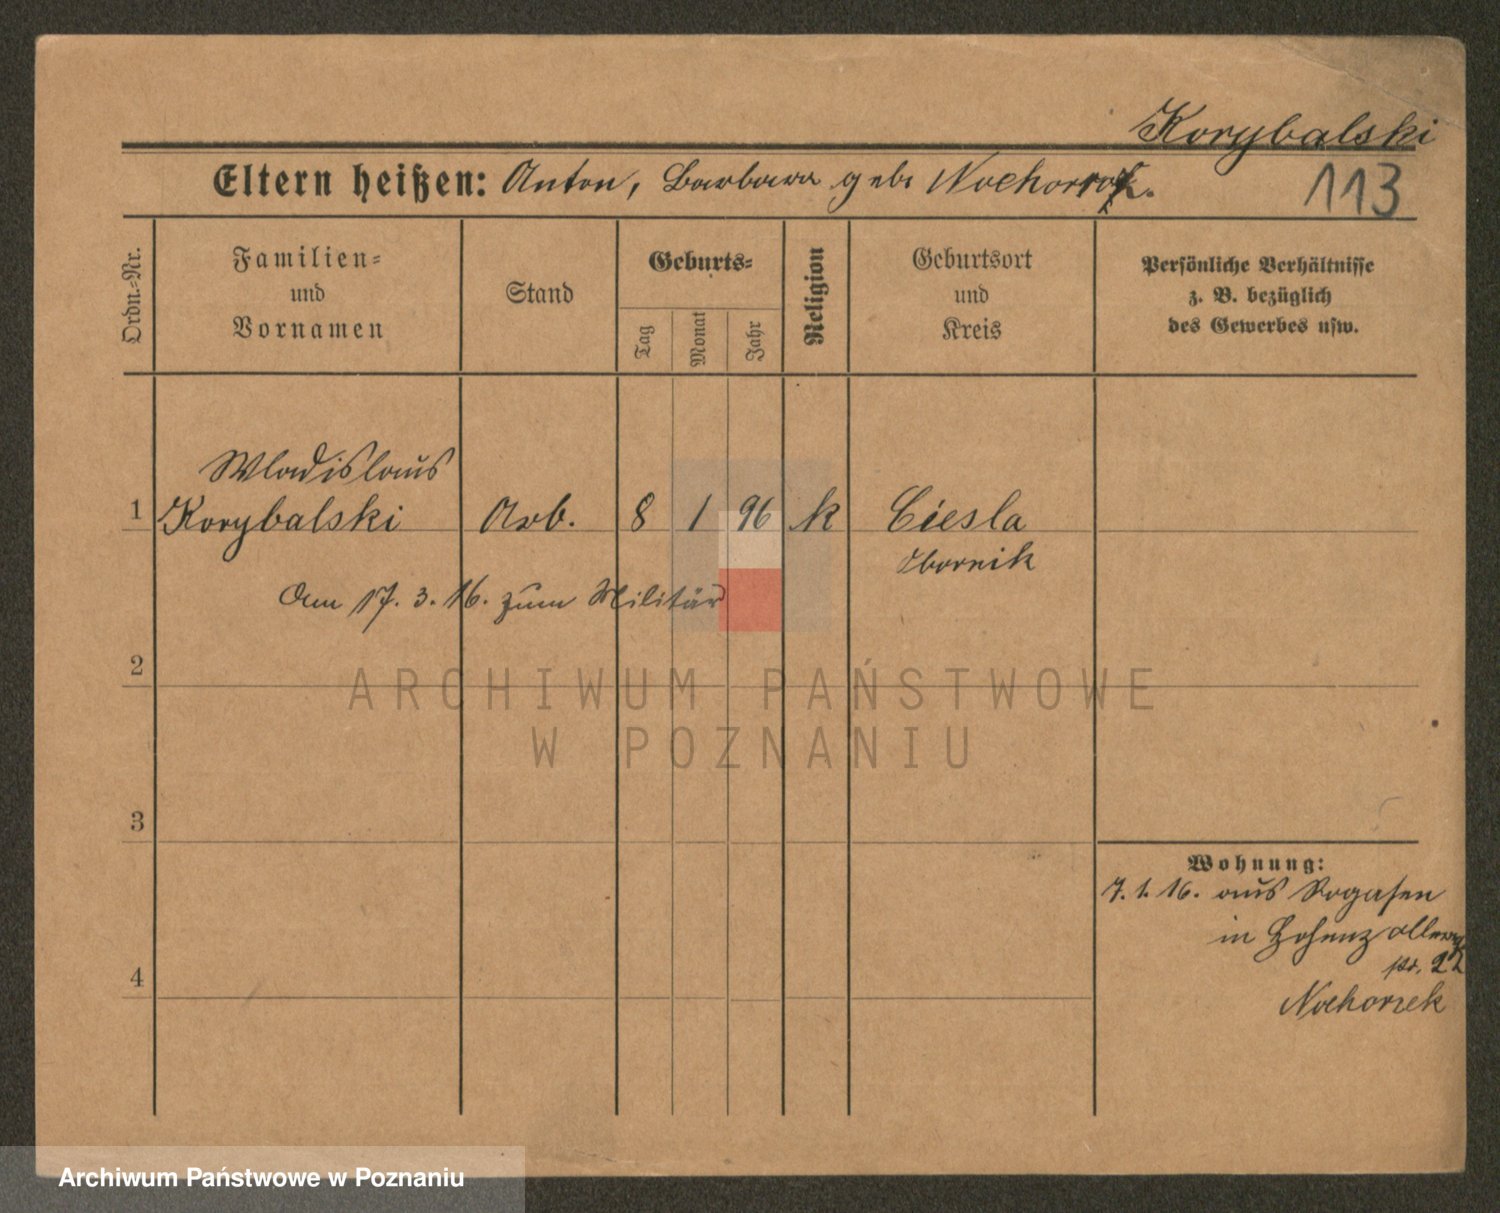 Korybalski
Eltern heißen: Anton, Barbara geb.
113
Ordn.=Nr.
Familien=
und
Vornamen
Stand
Geburts=
Tag
Monat
Jahr
Religion
Geburtsort
und
Kreis
Persönliche Verhältnisse
z. B. bezüglich
des Gewerbes usw.
Wladislaus
1 Korybalski Arb. 8 1 96 k Ciesla
Obornik
Am 17. 3. 16. zum Militär
2
ARCHIWUM PAŃSTWOWE
W POZNANIU
3
Wohnung:
7. 1. 16. aus Rogasen
in
22
4
Archiwum Państwowe w Poznaniu